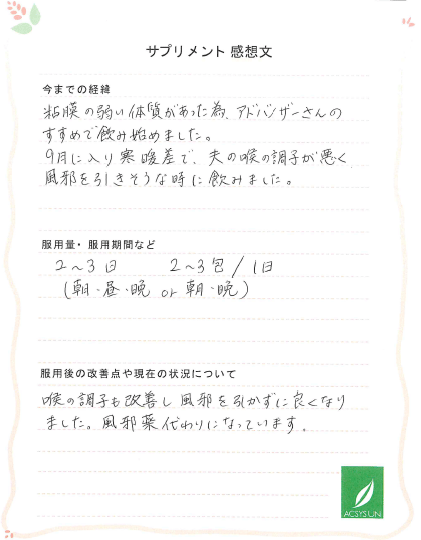 サプリメント 感想文
今までの経緯
粘膜の弱い体質があった為、アドバイザーさんの
すすめで飲み始めました。
9月に入り寒暖差で、夫の喉の調子が悪く
風邪を引きそうな時に飲みました。
服用量・服用期間など
2~3日 2~3包/1日
(朝・昼・晩 or 朝・晩)
服用後の改善点や現在の状況について
喉の調子も改善し風邪を引かずに良くなり
ました。風邪薬代わりになっています.
ACSYSUN